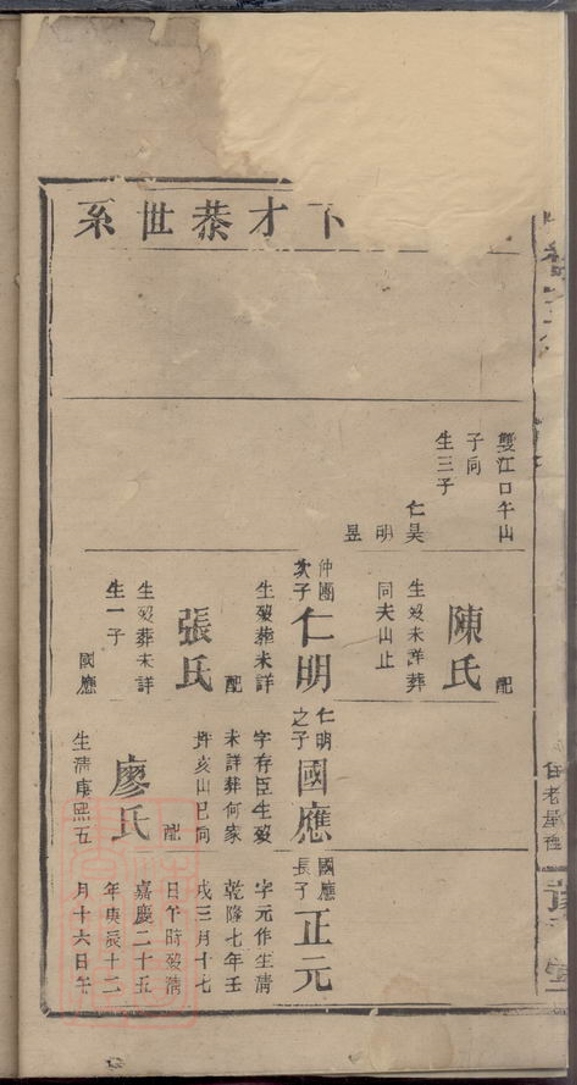 下才恭世系
雙江口午山
子向
生三子
仁昊
明
昱
配
陳氏
生歿未詳葬
同夫山止
仲團
次子
仁明
生歿葬未詳
配
張氏
生歿葬未詳
生一子
國應
仁明
之子
國應
字存臣生歿
未詳葬何家
亥山巳向
配
廖氏
生清康熙五
國應
長子
正元
字元作生清
乾隆七年壬
戌三月十七
日午時歿清
嘉慶二十五
年庚辰十二
月十六日午